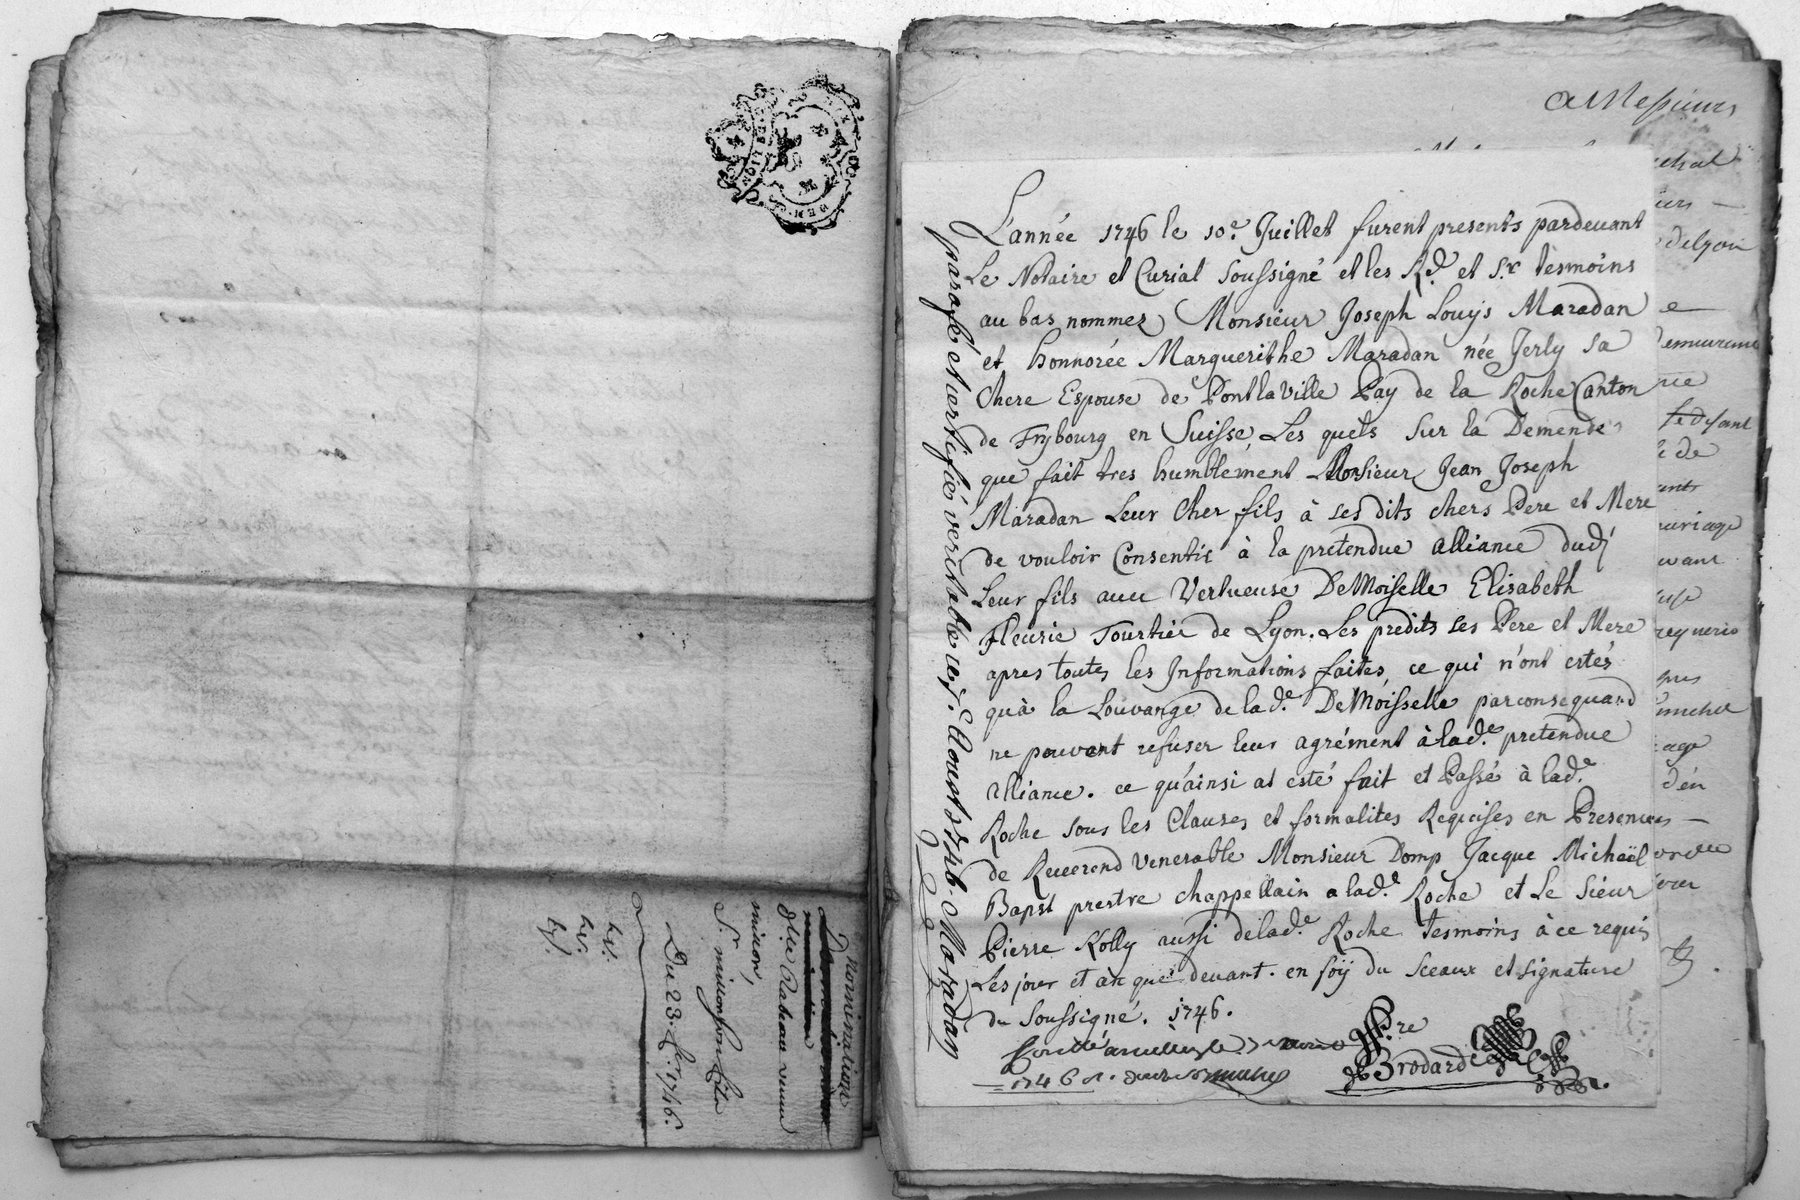 nomination
dlle Rabeau veuve
millon,
Sr millon son fils
Du 23. 7bre 1746.
a Messieurs
L'année 1746 le 10e. Juillet furent presents pardeuant
Le Notaire et Curial soussigné et les Rd. et S.r tesmoins
au bas nommez Monsieur Joseph Louijs Maradan
et honnorée Marguerithe Maradan née Jerly sa
Chere Espouse de Pont la Ville Pay de la Roche Canton
de Frybourg en Suisse, Les quels sur la Demende
que fait tres humblement Monsieur Jean Joseph
Maradan Leur Cher fils à ses dits chers Pere et Mere
de vouloir Consentir à la pretendue alliance dud.
Leur fils auec Vertueuse DeMoiselle Elisabeth
Fleurie Tourtier de Lyon. Les predits ses Pere et Mere
apres toutes les Informations faites, ce qui n'ont estés
qu'à la Louvange de lad.e DeMoisselle parconsequand
ne peuvent refuser leur agrément à lad.e pretendue
alliance. ce qu'ainsi at esté fait et Passé à lad.e
Roche sous les Clauses et formalites Requises en Presences
de Reuerend venerable Monsieur Domp Jacque Michaël
Bapst prestre chappellain a lad.e Roche et Le Sieur
Pierre Kolly aussi de lad.e Roche tesmoins à ce requis
Les jour et an que deuant. en foÿ du Sceaux et signature
du soussigné. 1746.
1746
Brodard
parafé et certifié veritable ce 7. Aoust 1746. Maradan
de lyon
demeurant
se disant
de
mariage
requerir